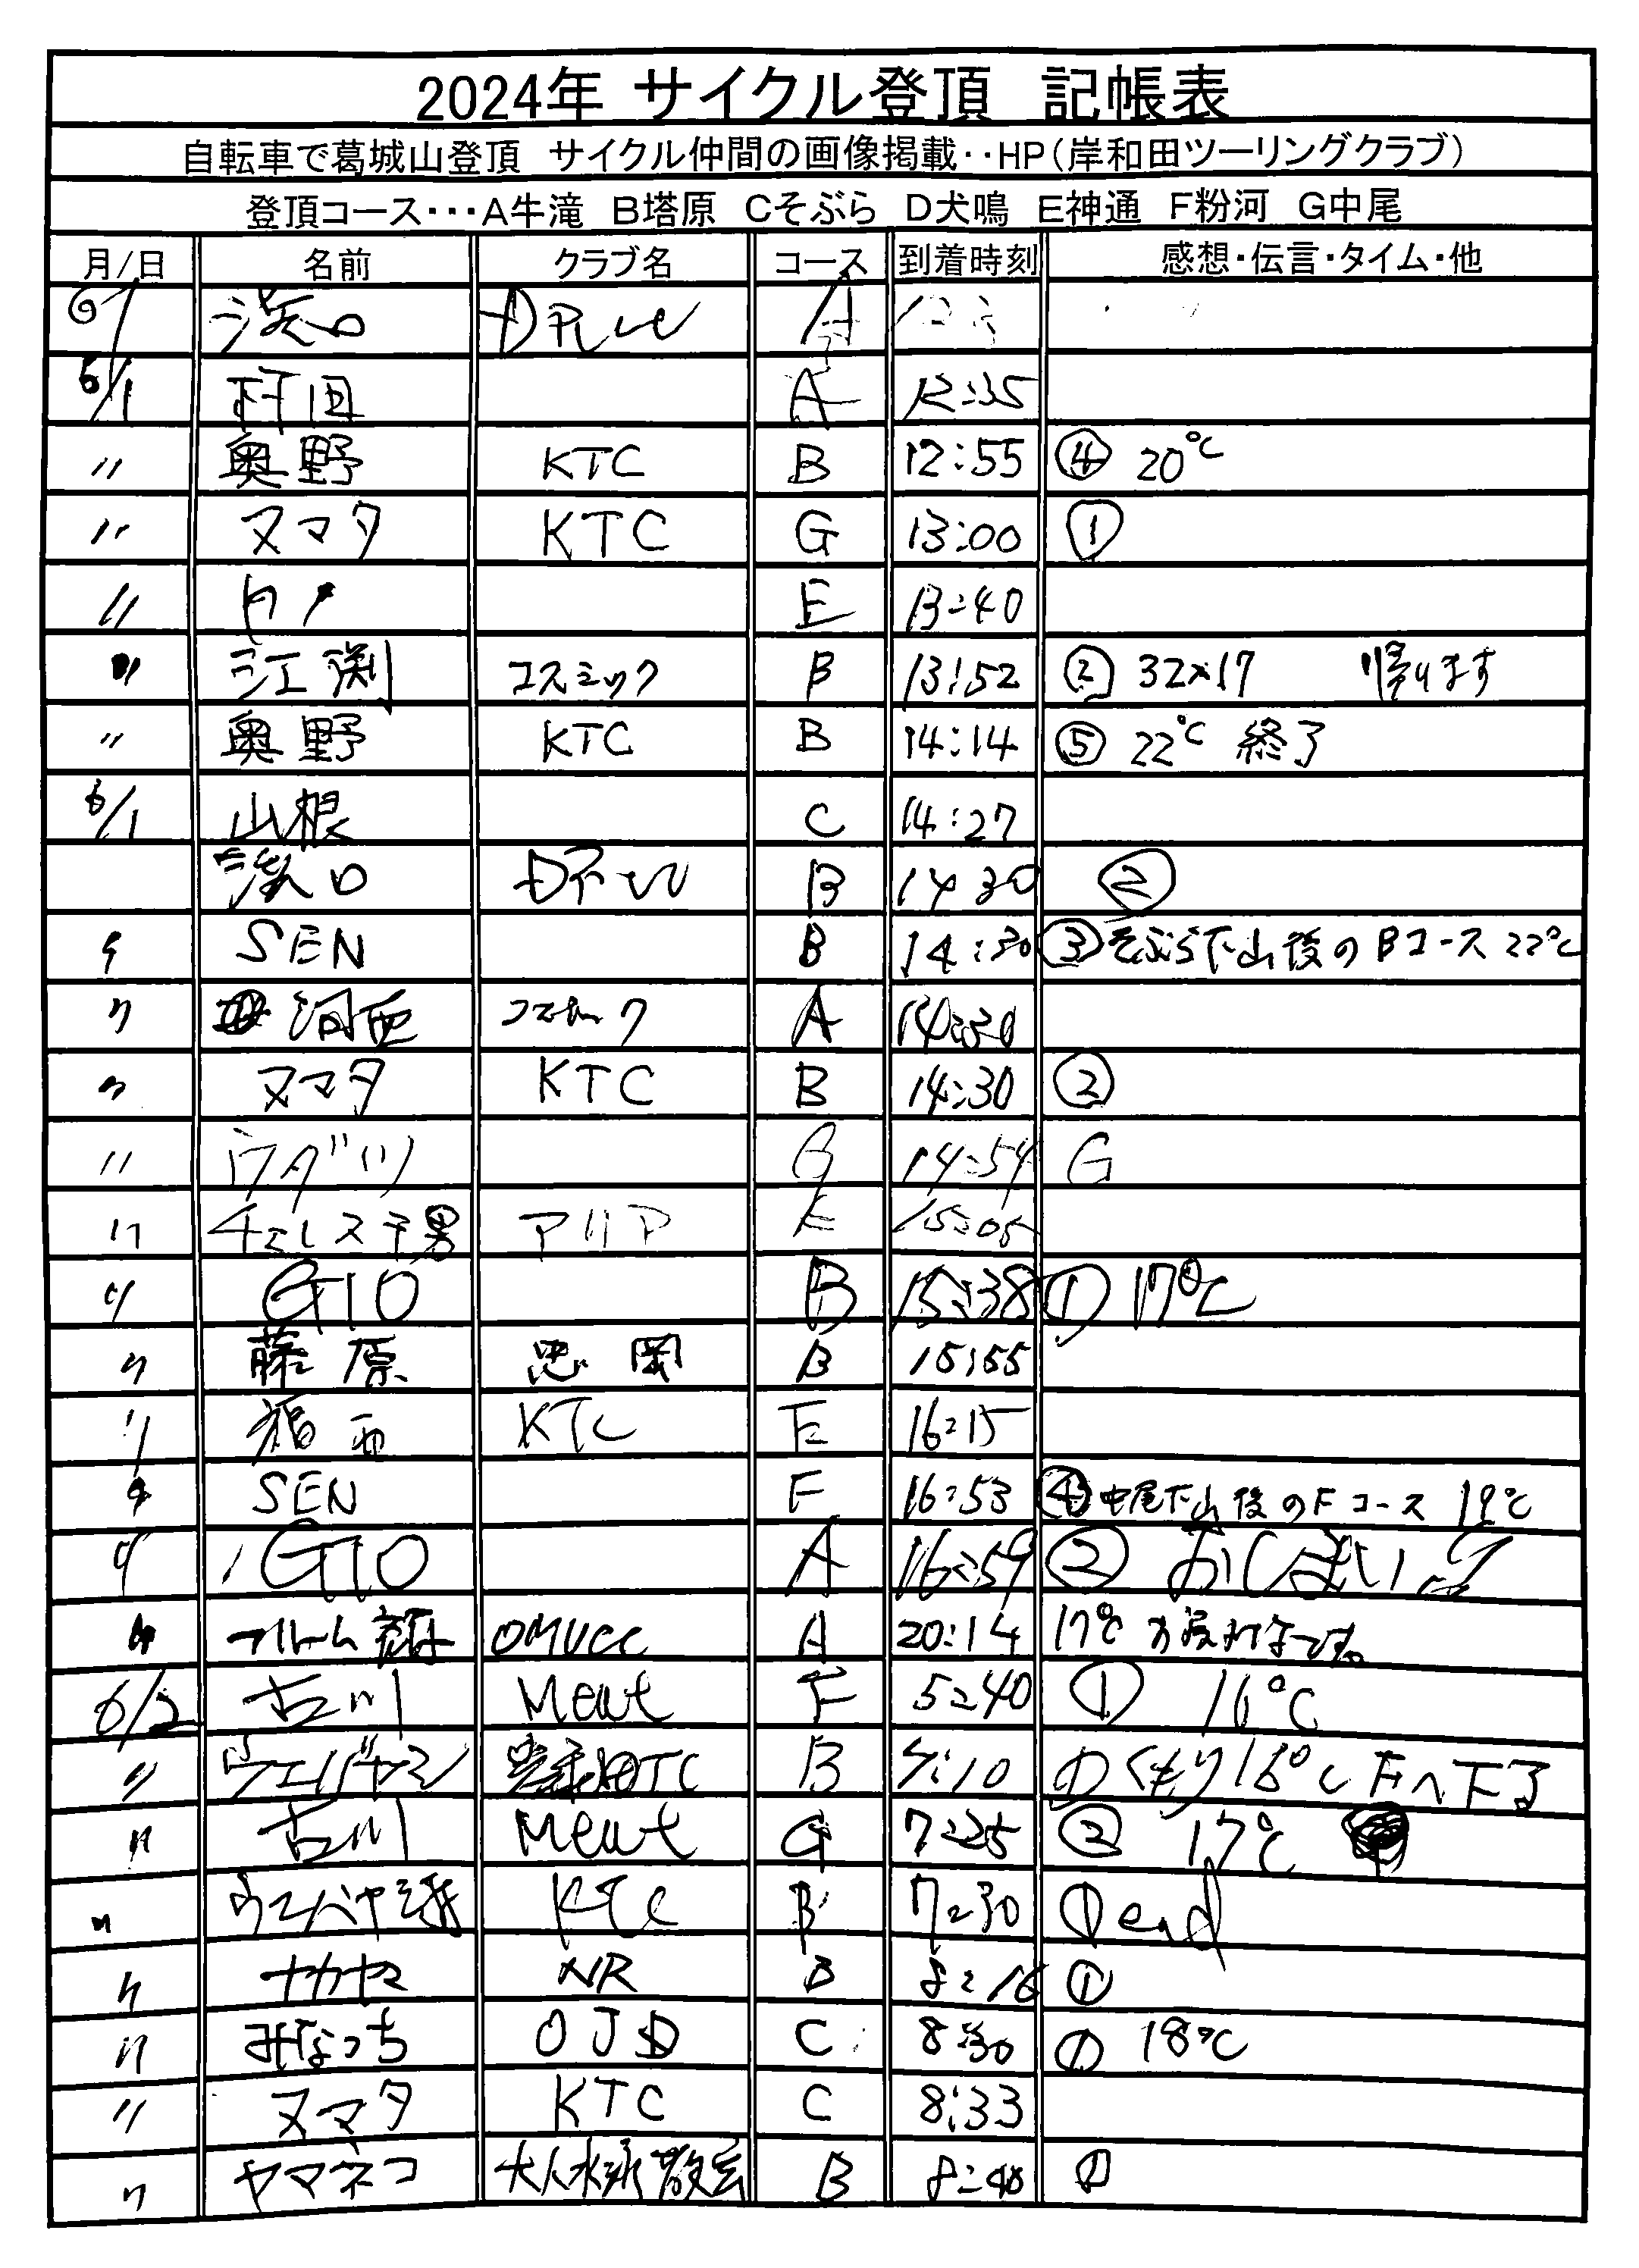 2024年 サイクル登頂 記帳表
自転車で葛城山登頂 サイクル仲間の画像掲載‥HP(岸和田ツーリングクラブ)
登頂コース・・・A牛滝 B塔原 Cそぶら D犬鳴 E神通 F粉河 G中尾
月/日 名前 クラブ名 コース 到着時刻 感想・伝言・タイム・他
6/ 浜口 A
6/1 村田 A 12:35
〃 奥野 KTC B 12:55 ④ 20℃
〃 ヌマタ KTC G 13:00 ①
〃 E 13:40
〃 江渕 コスミック B 13:52 ② 32×17 帰ります
〃 奥野 KTC B 14:14 ⑤ 22℃ 終了
6/1 山根 C 14:27
浜口 B 14 30 ②
〃 SEN B 14:30 ③そぶら下山後のBコース 22℃
〃 河西 コスミック A 14:30
〃 ヌマタ KTC B 14:30 ②
〃 ウダツ G 14:54 G
〃 チェレステ男 アリア E 15:05
〃 GTO B 15:38 ① 17℃
〃 藤原 忠岡 B 15:55
〃 福西 KTC E 16:15
〃 SEN F 16:53 ④中尾下山後のFコース 19℃
〃 GTO A 16:59 ② おしまい
〃 OMUCC A 20:14 17℃
6/2 古川 Meut F 5:40 ① 16℃
〃 ウエバヤシ 岸和田TC B 7:10 ①くもり16℃ Fへ下る
〃 古川 Meut G 7:25 ② 17℃
〃 ウエバヤシ KTC B 7:30 ① end
〃 ナカヤマ NR B 8:16 ①
〃 みなっち OJD C 8:30 ① 18℃
〃 ヌマタ KTC C 8:33
〃 ヤマネコ 大人水泳教室 B 8:40 ①